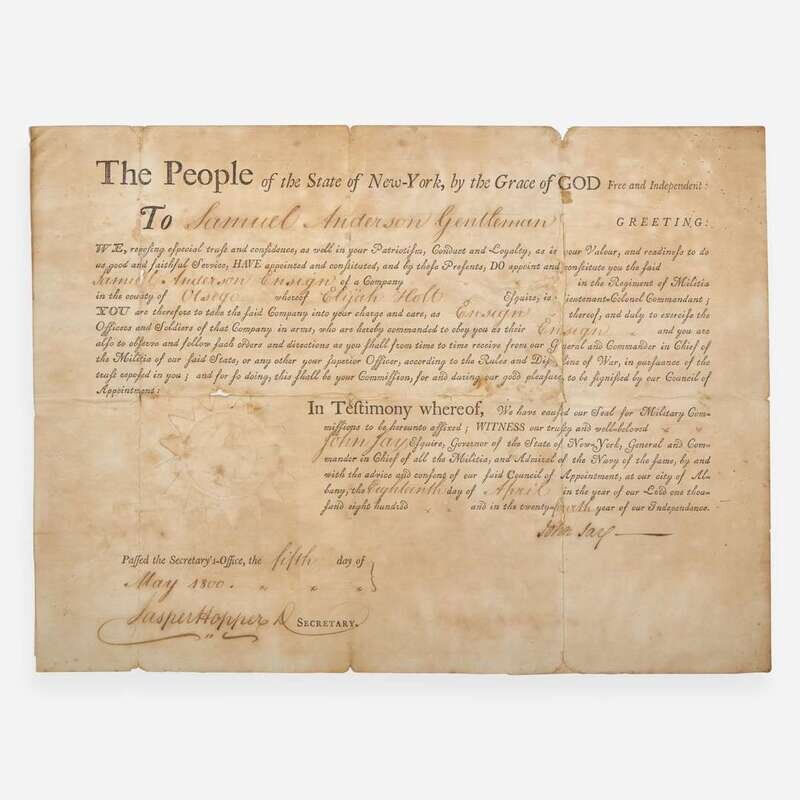 The People of the State of New-York, by the Grace of GOD Free and Independent:
To Samuel Anderson Gentleman GREETING:
WE, reposing especial trust and confidence, as well in your Patriotism, Conduct and Loyalty, as in your Valour, and readiness to do
us good and faithful Service, HAVE appointed and constituted, and by these Presents, DO appoint and constitute you the said
Samuel Anderson Ensign of a Company in the Regiment of Militia
in the county of Otsego whereof Elijah Holt Esquire, is Lieutenant-Colonel Commandant;
YOU are therefore to take the said Company into your charge and care, as Ensign thereof, and duly to exercise the
Officers and Soldiers of that Company in arms, who are hereby commanded to obey you as their Ensign and you are
also to observe and follow such orders and directions as you shall from time to time receive from our General and Commander in Chief of
the Militia of our said State, or any other your superior Officer, according to the Rules and Discipline of War, in pursuance of the
trust reposed in you; and for so doing, this shall be your Commission, for and during our good pleasure, to be signified by our Council of
Appointment:
In Testimony whereof, We have caused our Seal for Military Com-
missions to be hereunto affixed; WITNESS our trusty and well-beloved
John Jay Esquire, Governor of the State of New-York, General and Com-
mander in Chief of all the Militia, and Admiral of the Navy of the same, by and
with the advice and consent of our said Council of Appointment, at our city of Al-
bany, the Eighteenth day of April in the year of our Lord one thou-
sand eight hundred and in the twenty-fourth year of our Independence.
John Jay
Passed the Secretary's-Office, the fifth day of
May 1800.
Jasper Hopper D SECRETARY.